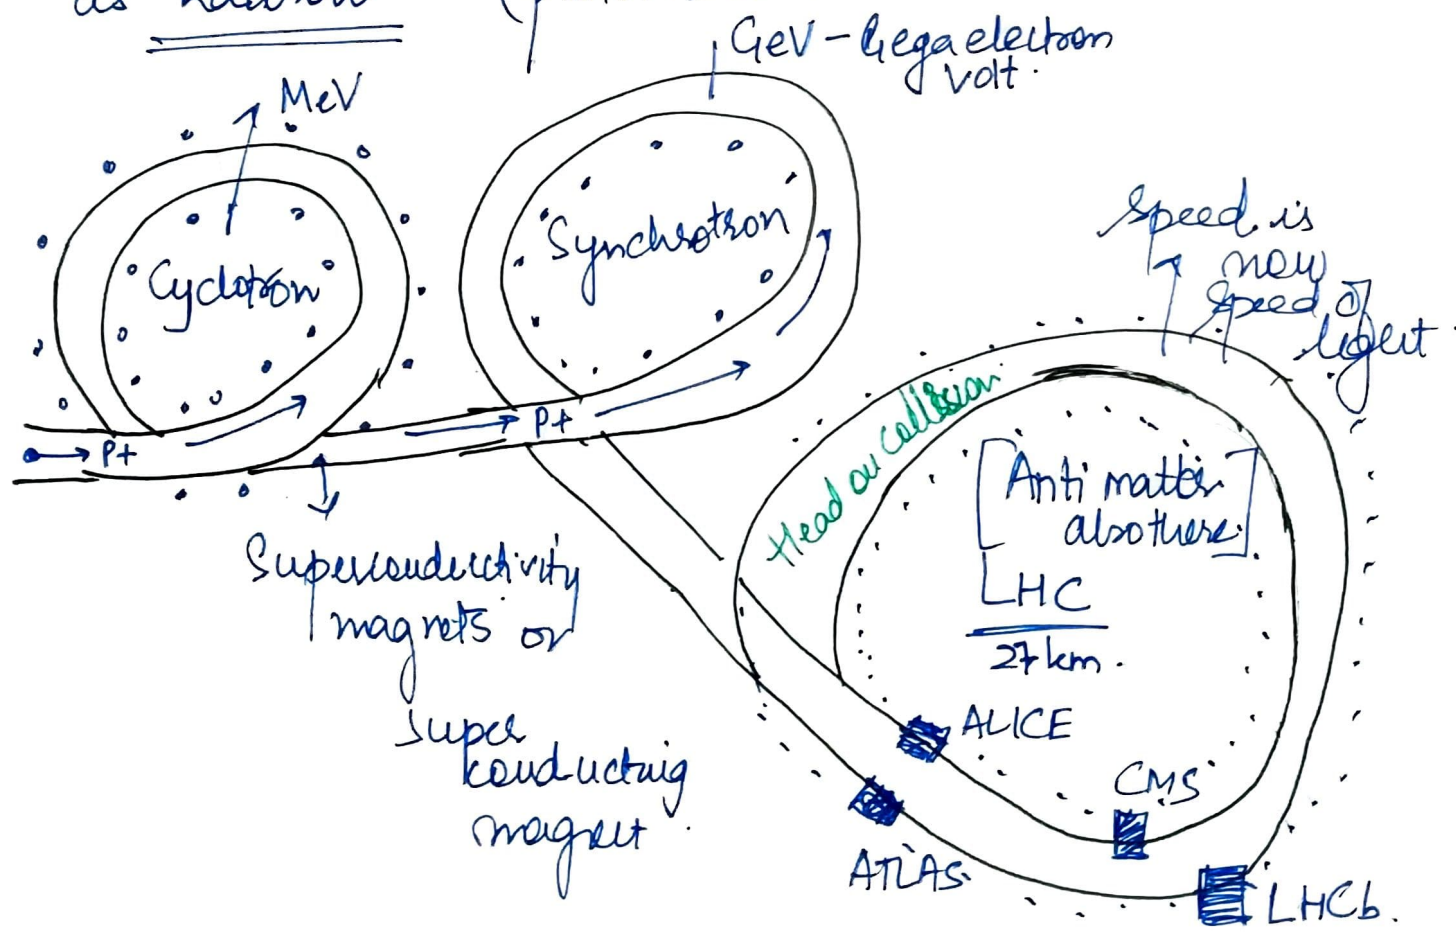 as
GeV - Gegaelectron
volt.
MeV
Cyclotron
Synchrotron
speed is
now
speed of
light
P+
P+
Head on collision
[Anti matter
also there]
LHC
27 km.
Superconductivity
magnets or
super
conducting
magnet.
ALICE
CMS
ATLAS.
LHCb.